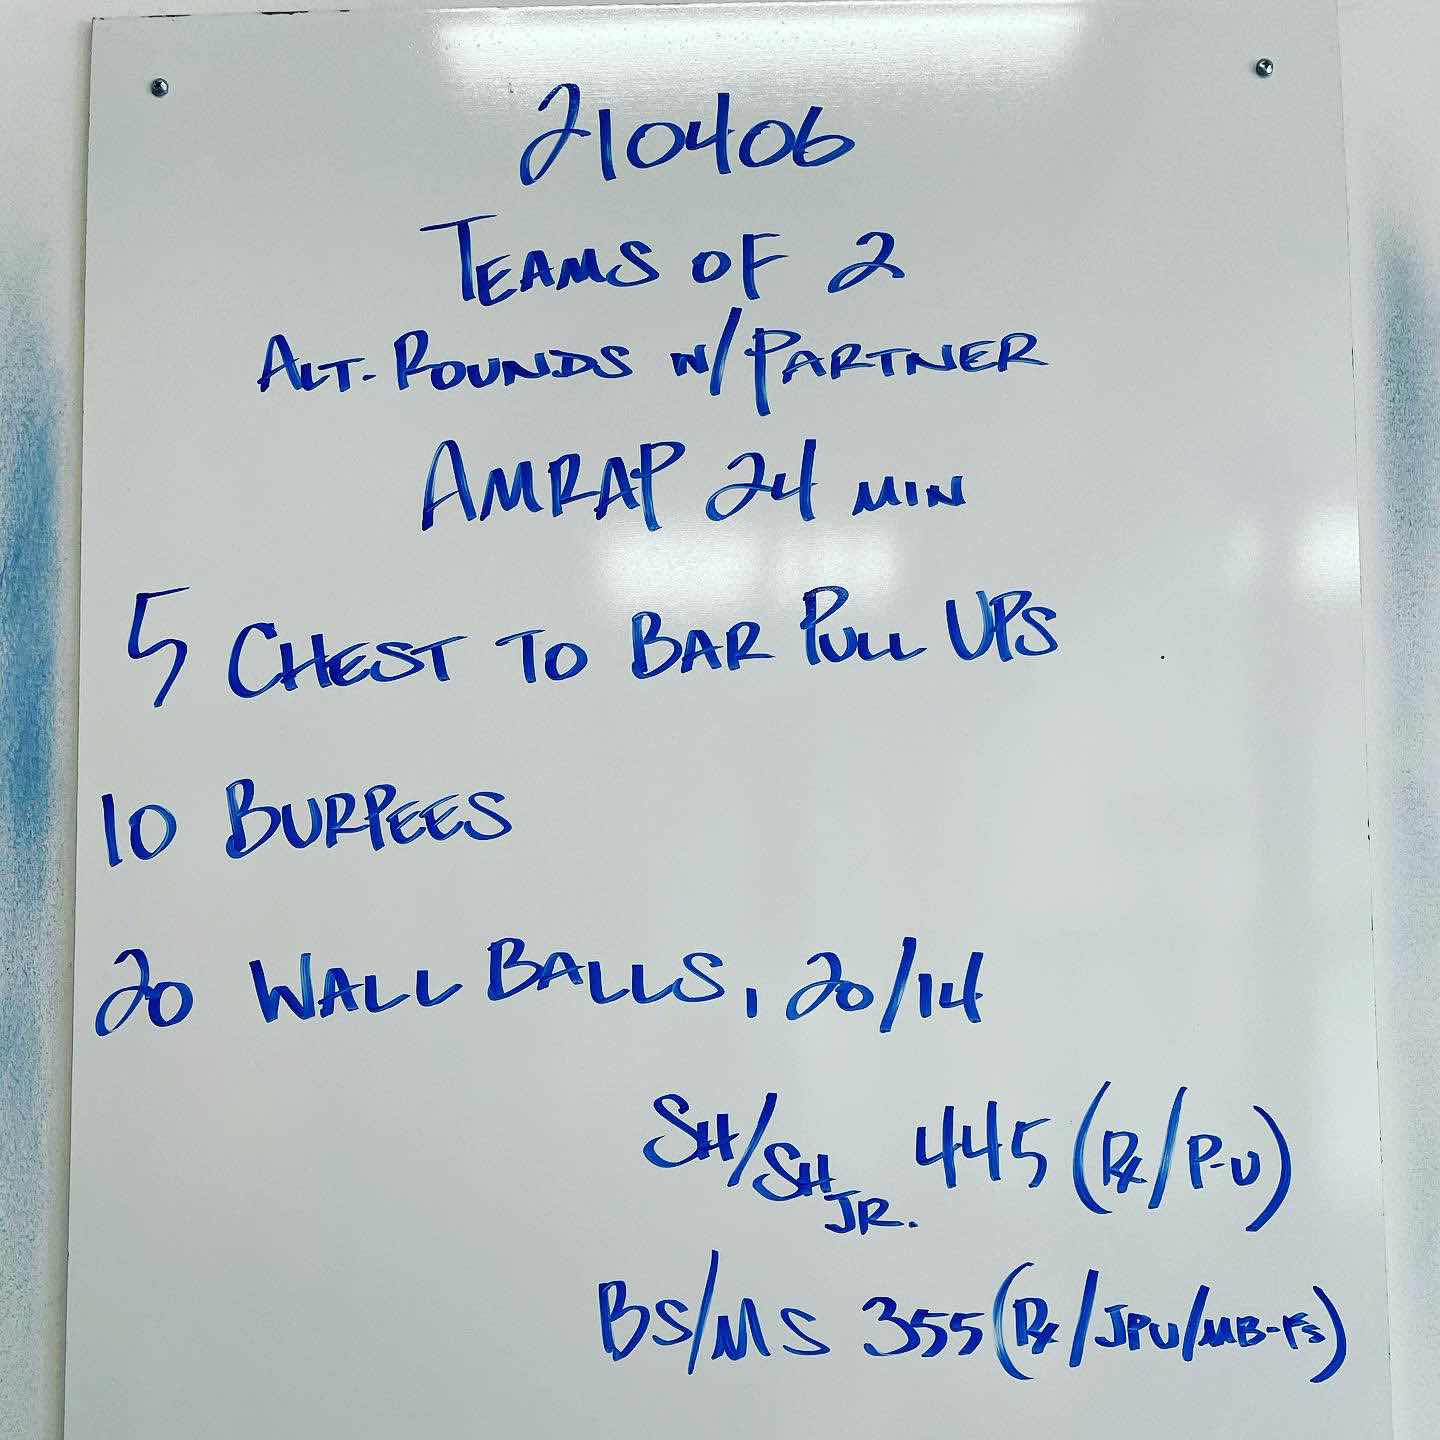 210406
TEAMS OF 2
ALT. ROUNDS W/PARTNER
AMRAP 24 MIN
5 CHEST TO BAR PULL UPS
10 BURPEES
20 WALL BALLS, 20/14
SH/SH JR. 445 (Rx/P-U)
BS/MS 355 (Rx/JPU/MB-FS)